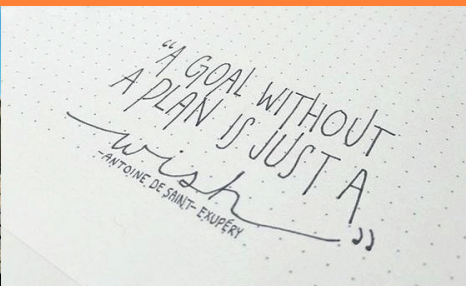 “A GOAL WITHOUT
A PLAN IS JUST A
wish”
-ANTOINE DE SAINT-EXUPÉRY